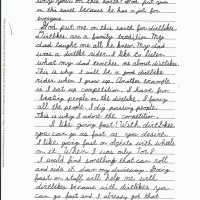 why you're on this earth? God put you
on this earth because he has a job for
everyone.
God put me on this earth for dirtbikes.
Dirtbikes are a family tradition. My
dad taught me all he knew. My dad
was a dirtbike rider. I like to listen
what my dad teaches me about dirtbikes.
This is why I will be a good dirtbike
rider when I grow up. Another example
is I eat up competition. I have fun
beating people on the dirtbike. I fancy
all the people I dig passing people.
This is why I adore the competition.
I like going fast! With dirtbikes
you can go as fast as you desire.
I like going fast on objects with wheels
on it. When I was only 7 or 8
I would find something that can roll
and ride it down my driveway. Going
fast on stuff will help me with
dirtbikes because with dirtbikes you
can go fast and I already got that